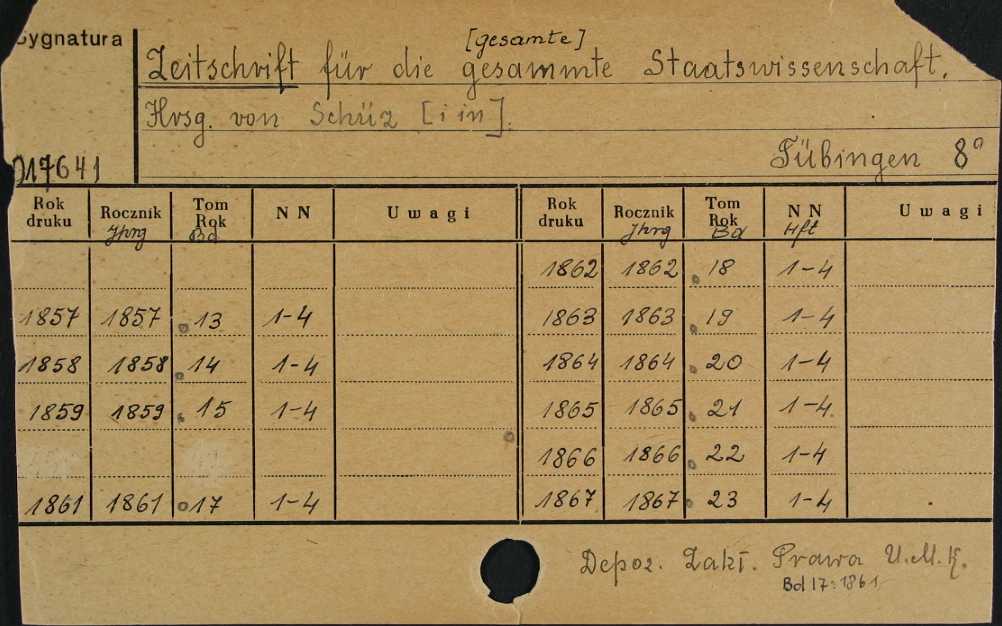 Sygnatura
[gesamte]
Zeitschrift für die gesammte Staatswissenschaft.
Hrsg. von Schüz [i in].
Tübingen 8°
017641
Rok druku Rocznik Jhrg Tom Rok Bd NN Uwagi Rok druku Rocznik Jhrg Tom Rok Bd NN Hft Uwagi
1862 1862 18 1-4
1857 1857 13 1-4 1863 1863 19 1-4
1858 1858 14 1-4 1864 1864 20 1-4
1859 1859 15 1-4 1865 1865 21 1-4
1866 1866 22 1-4
1861 1861 17 1-4 1867 1867 23 1-4
Depoz. Zakł. Prawa U.M.K.
Bd 17:1861